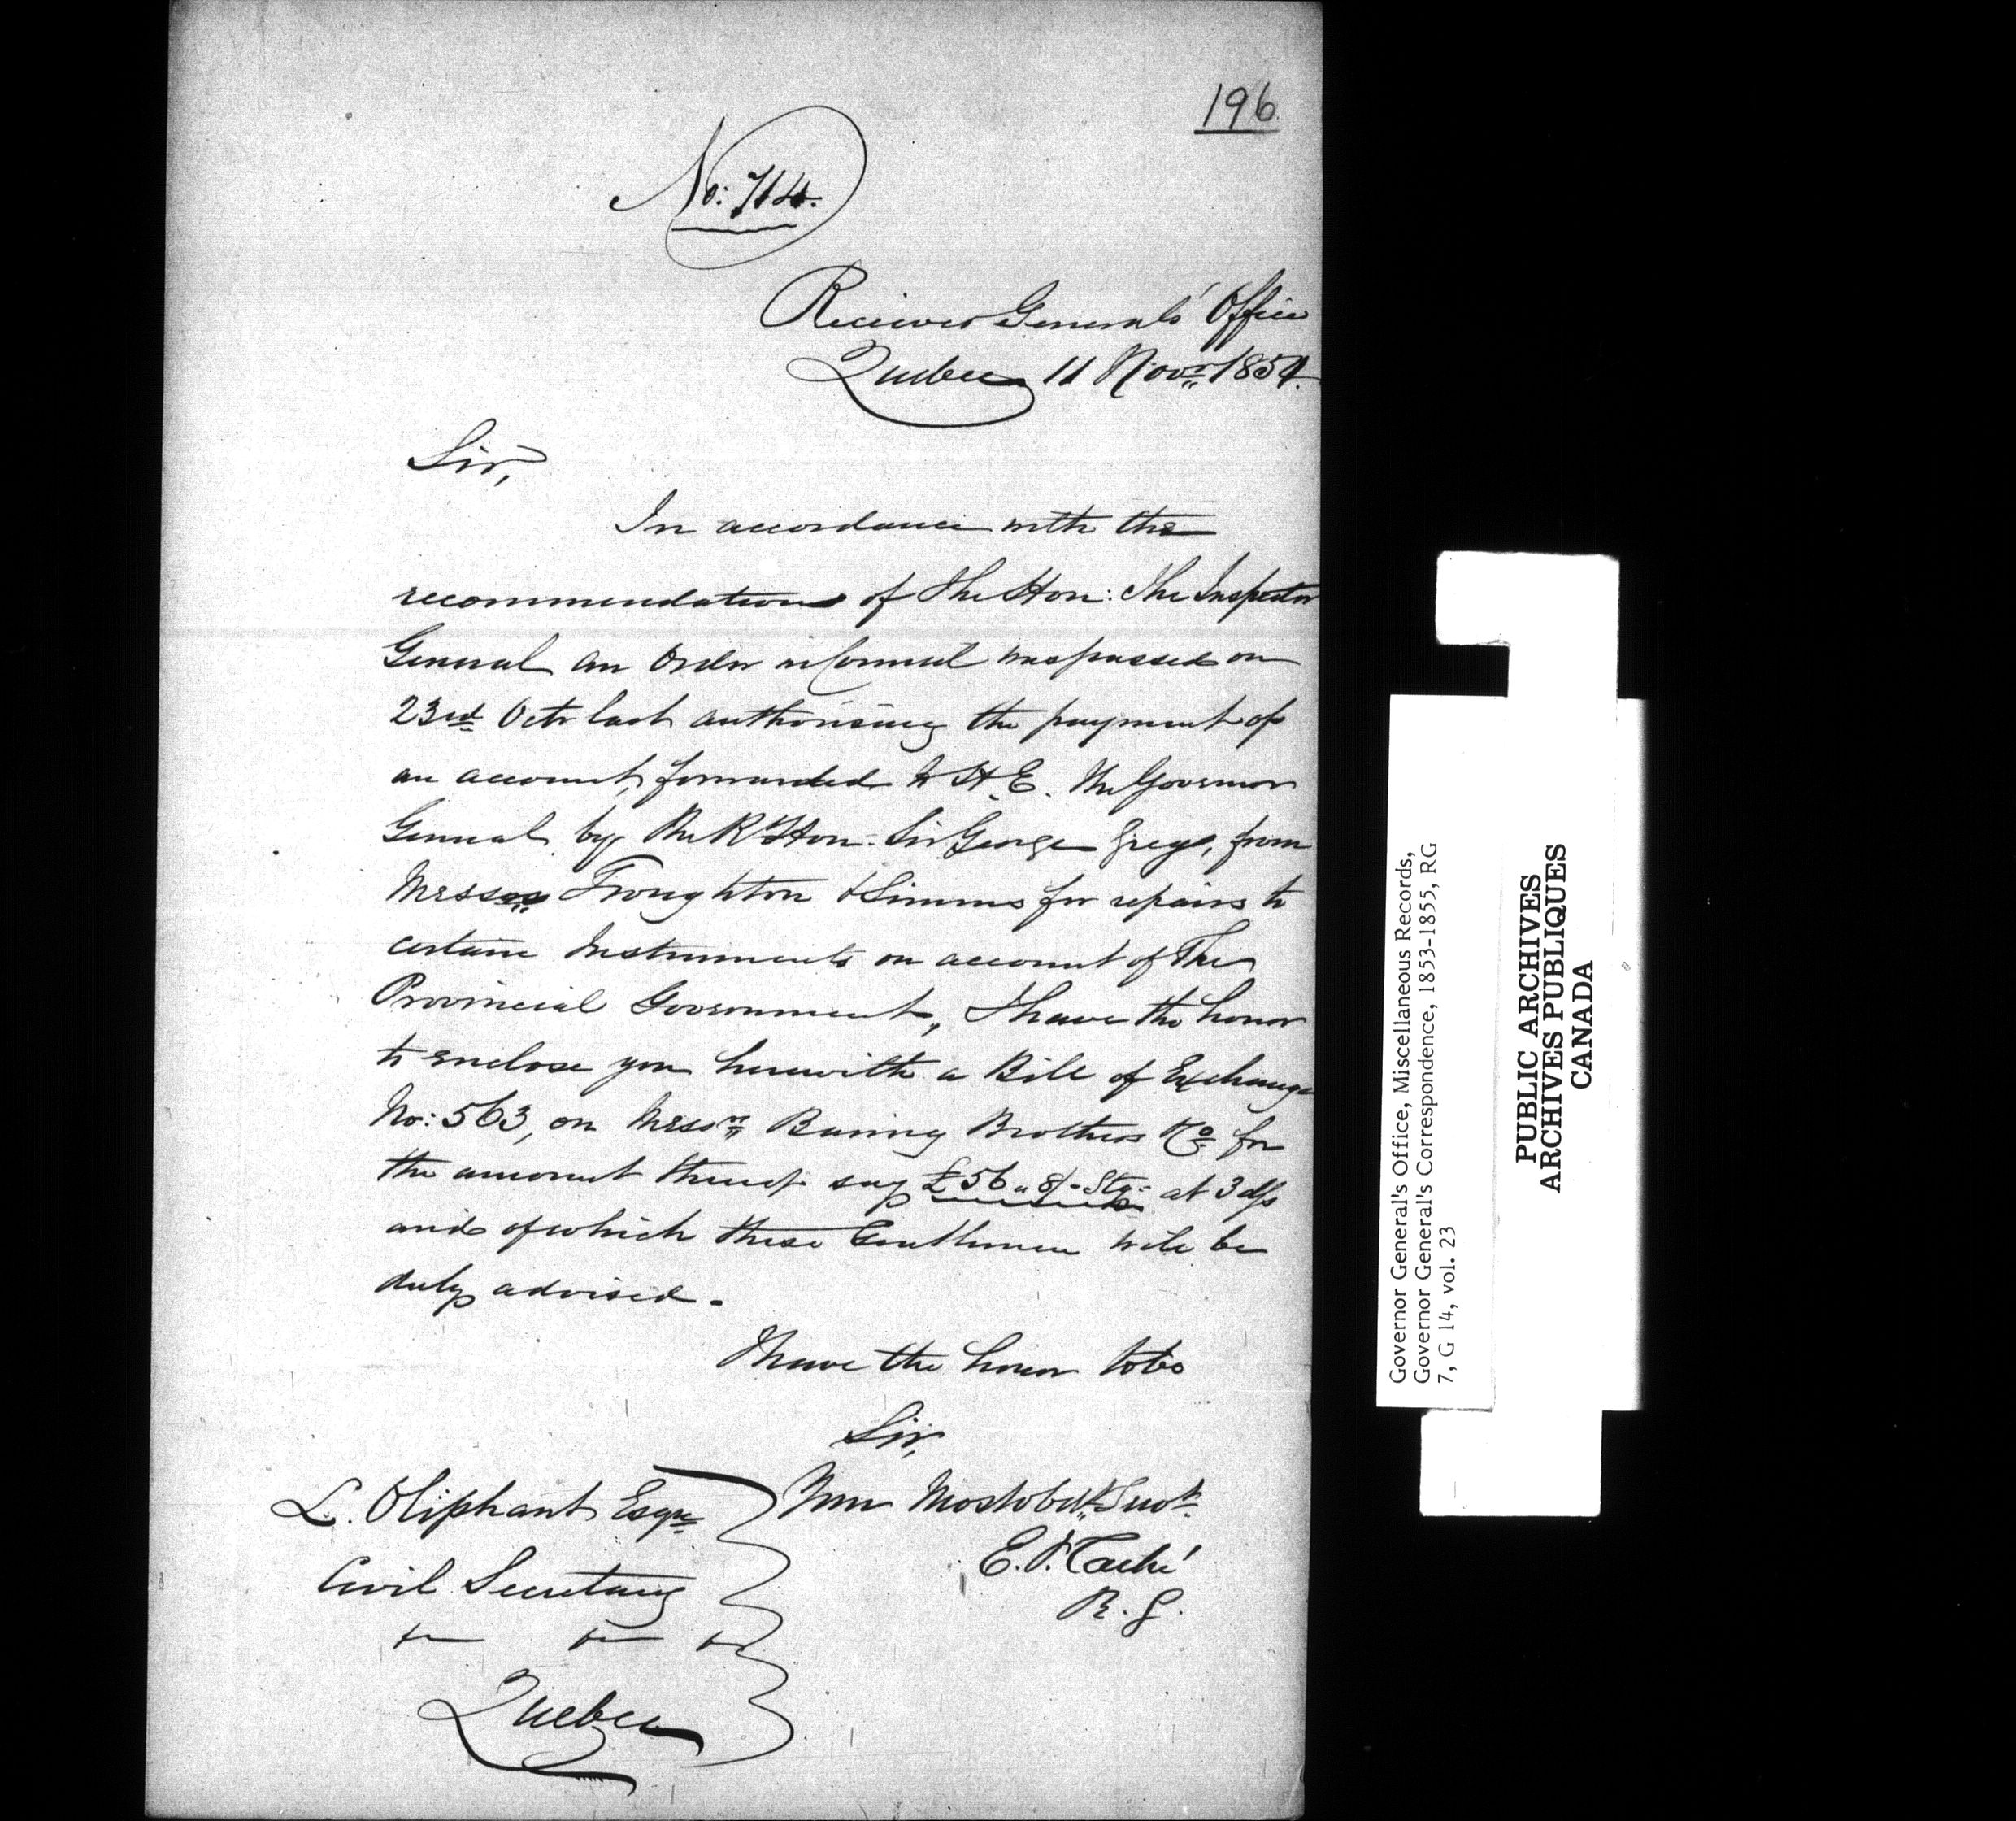 196
No: 714.
Receiver General's Office
Quebec 11 Novr 1854.
Sir,
In accordance with the
recommendation of The Hon: The Inspector
General an Order in Council was passed on
23rd Octr last authorising the payment of
an account, forwarded to H.E. The Governor
General by The Rt Hon: Sir George Grey, from
Messrs Troughton & Simms for repairs to
certain Instruments on account of The
Provincial Government, I have the honor
to enclose you herewith a Bill of Exchange
No: 563, on Messrs Baring Brothers & Co for
the amount thereof say £56 " 8/- Stg: at 3 d/s
and of which these Gentlemen will be
duly advised.
I have the honor to be
Sir,
Your Most obdt Servt
E. P. Taché
R. G.
L. Oliphant Esqre
Civil Secretary
Quebec
Governor General's Office, Miscellaneous Records,
Governor General's Correspondence, 1853-1855, RG
7, G 14, vol. 23
PUBLIC ARCHIVES
ARCHIVES PUBLIQUES
CANADA